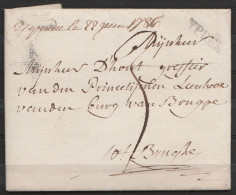 le 22 1786
YPRES
Mijnheer
Mijnheer Dhont greffier
van den Princelijcken Leenhove
van den Burg van Brugge
5
tot Brugghe